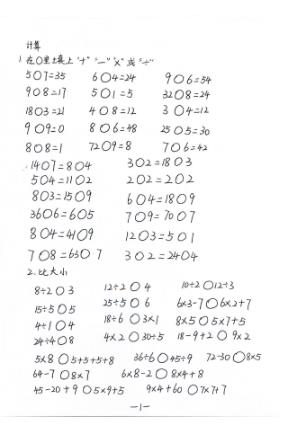 计算
1. 在○里填上"+""-""×"或"÷"
5○7=35 6○4=24 9○6=54
9○8=17 5○1=5 32○8=24
18○3=21 4○8=12 3○4=12
9○9=0 8○6=48 25○5=30
8○8=1 72○9=8 7○6=42
14○7=8○4 3○2=18○3
5○4=11○2 2○2=2○2
8○3=15○9 6○4=18○9
36○6=6○5 7○9=70○7
8○4=41○9 12○3=5○1
7○8=63○7 3○2=24○4
2. 比大小
8÷2○3 12÷2○4 10÷2○12÷3
15÷5○5 25÷5○6 6×3-7○6×2+7
4÷1○4 18÷6○3×1 8×5○5×7+5
24÷4○8 4×2○30÷5 18-9+2○9×2
5×8○5+5+5+8 36÷6○45÷9 72-30○8×5
64-7○8×7 6×8-2○8×4+8
45-20+9○5×9+5 9×4+60○7×7+7
-1-